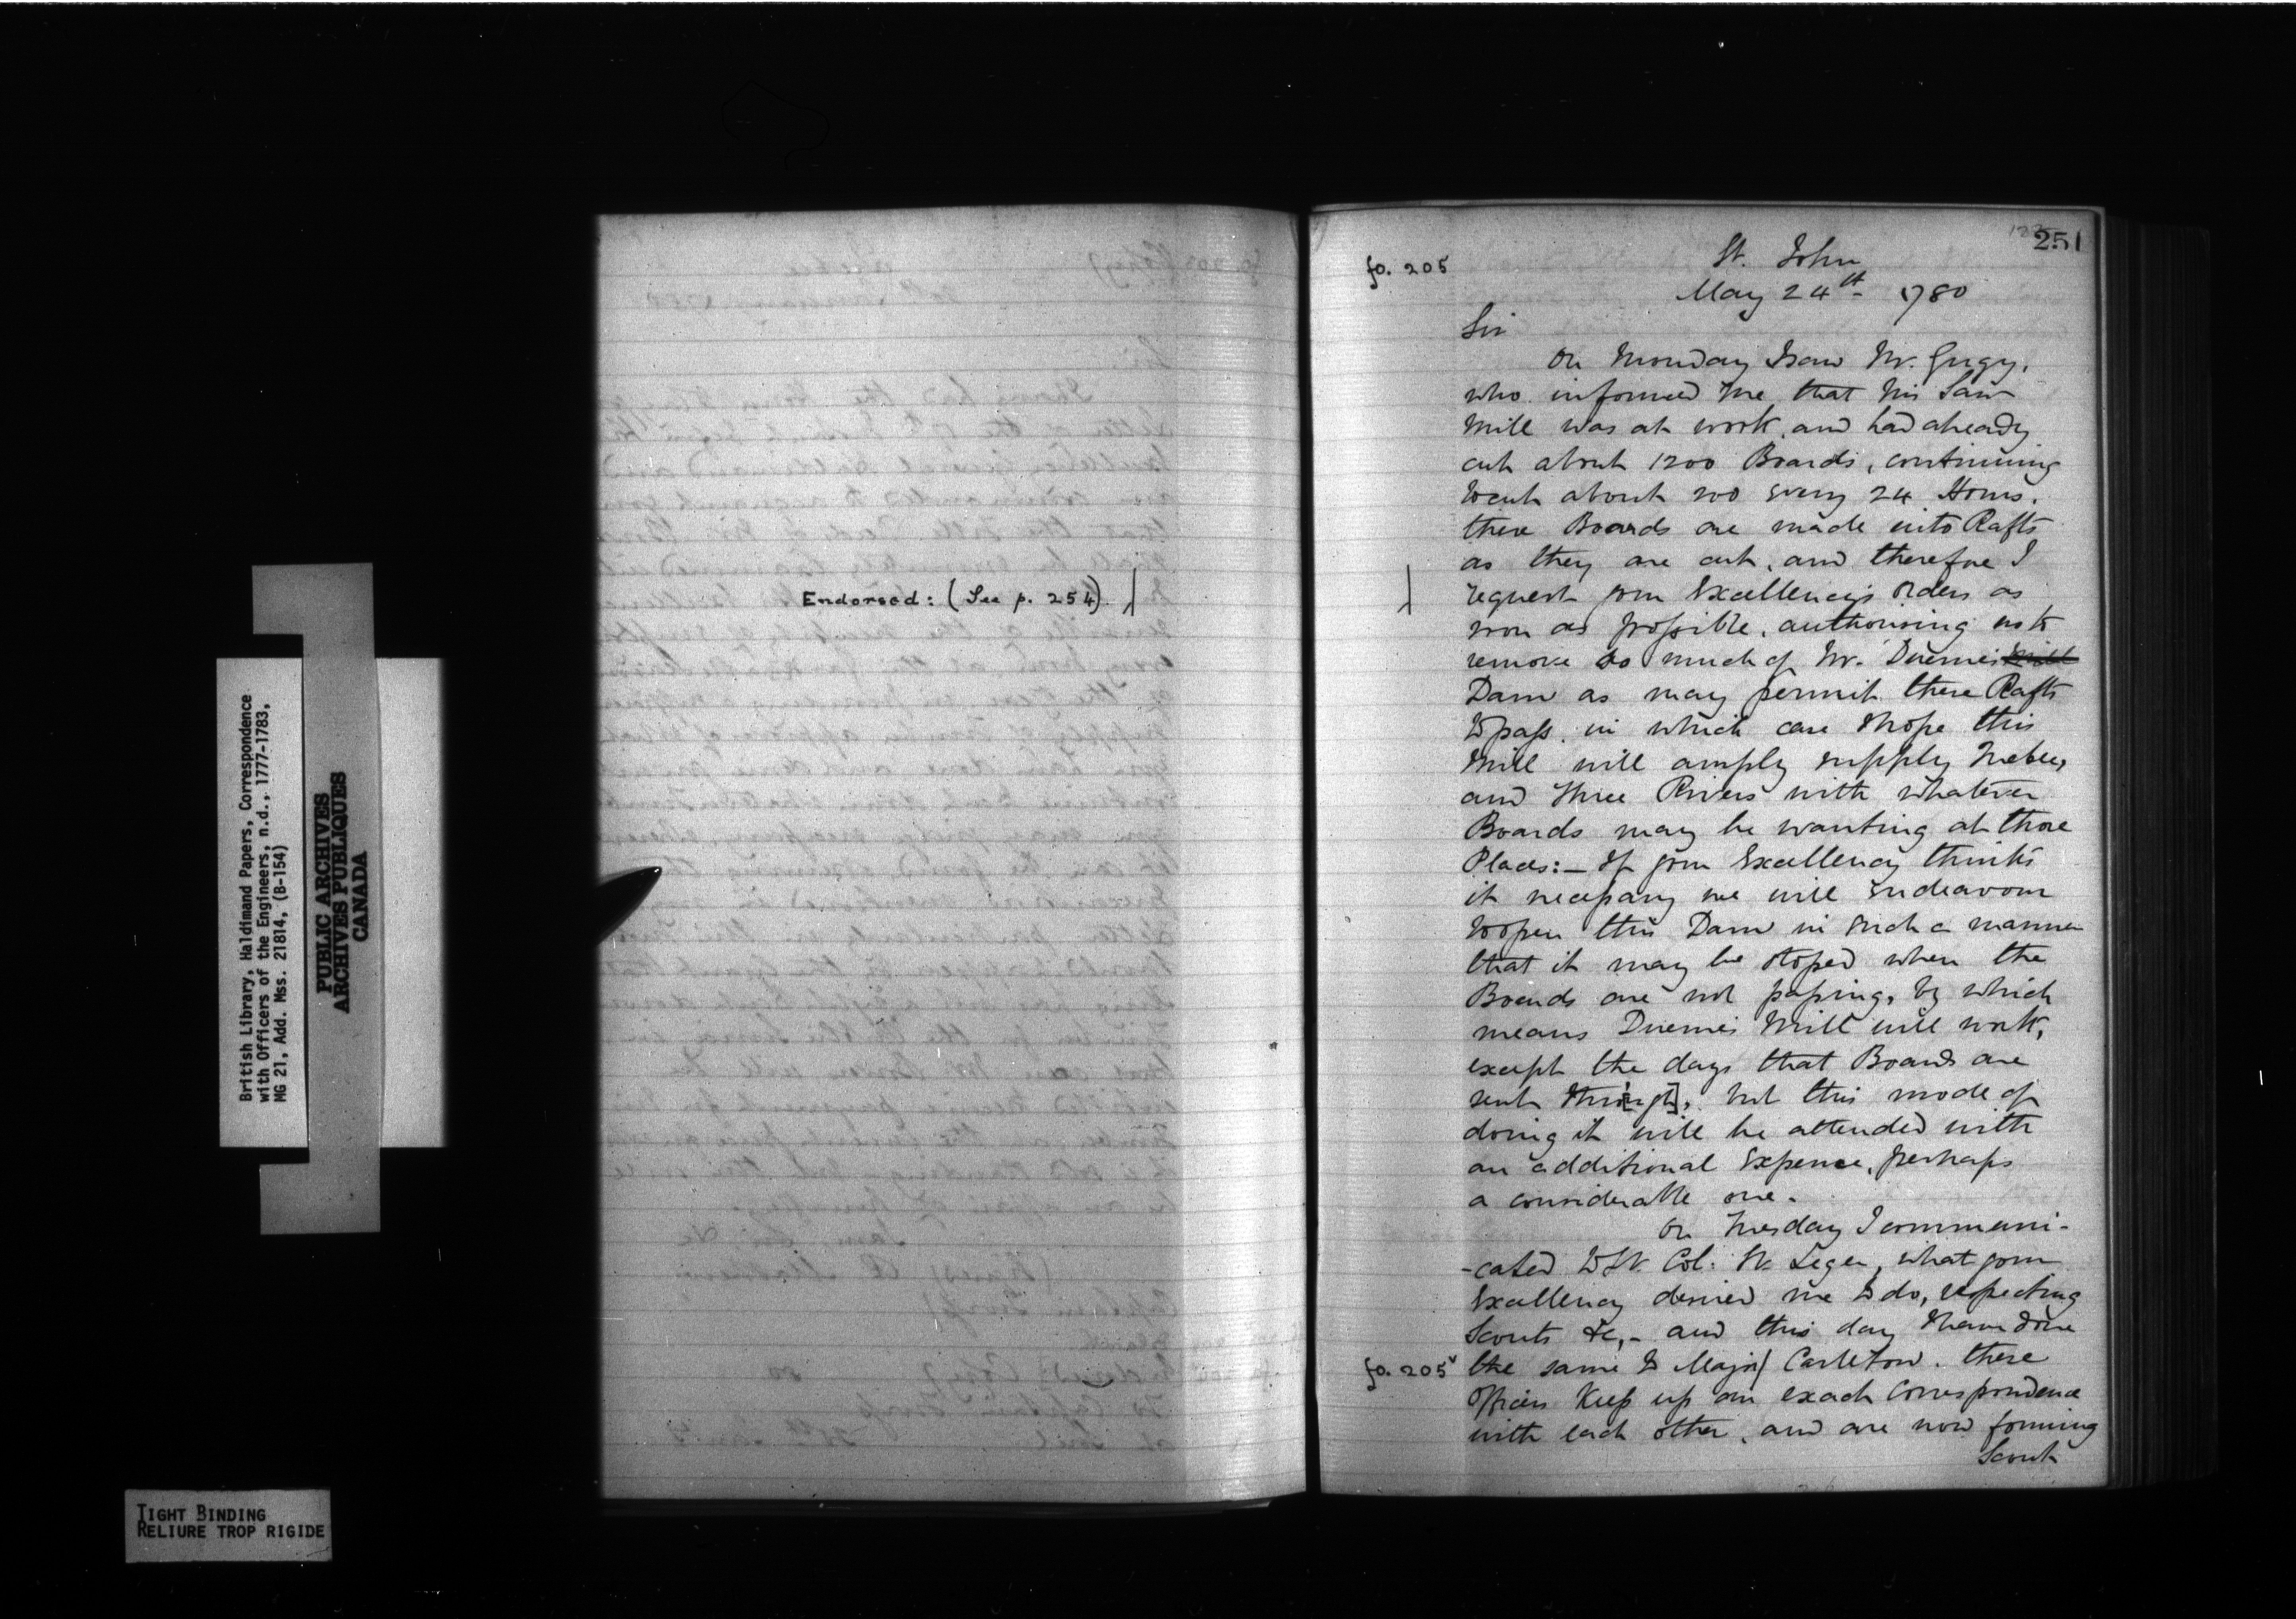 British Library, Haldimand Papers, Correspondence
with Officers of the Engineers, n.d., 1777-1783,
MG 21, Add. Mss. 21814, (B-154)
PUBLIC ARCHIVES
ARCHIVES PUBLIQUES
CANADA
TIGHT BINDING
RELIURE TROP RIGIDE
Endorsed: (See p. 254)
251
fo. 205
St. John
May 24th 1780
Sir
On Monday I saw Mr. Gugy,
who informed me that his Saw
Mill was at work, and had already
cut about 1200 Boards, continuing
to cut about 200 every 24 Hours.
these Boards are made into Rafts
as they are cut, and therefore I
request your Excellency's orders as
soon as possible, authorising us to
remove so much of Mr. Duemes
Dam as may permit these Rafts
to pass, in which case I hope this
Mill will amply supply Quebec,
and Three Rivers with whatever
Boards may be wanting at those
Places:- If your Excellency thinks
it necessary we will endeavour
to open this Dam in such a manner
that it may be stoped when the
Boards are not passing, by which
means Duemes Mill will work,
except the days that Boards are
sent thro[ugh], but this mode of
doing it will be attended with
an additional Expence, perhaps
a considerable one.
On Tuesday I communi-
-cated to Lt. Col: St. Leger, what your
Excellency desired me to do, respecting
Scouts &c,- and this day I have done
fo. 205v the same to Major Carleton. these
Officers keep up an exact Correspondence
with each other, and are now forming
Scout